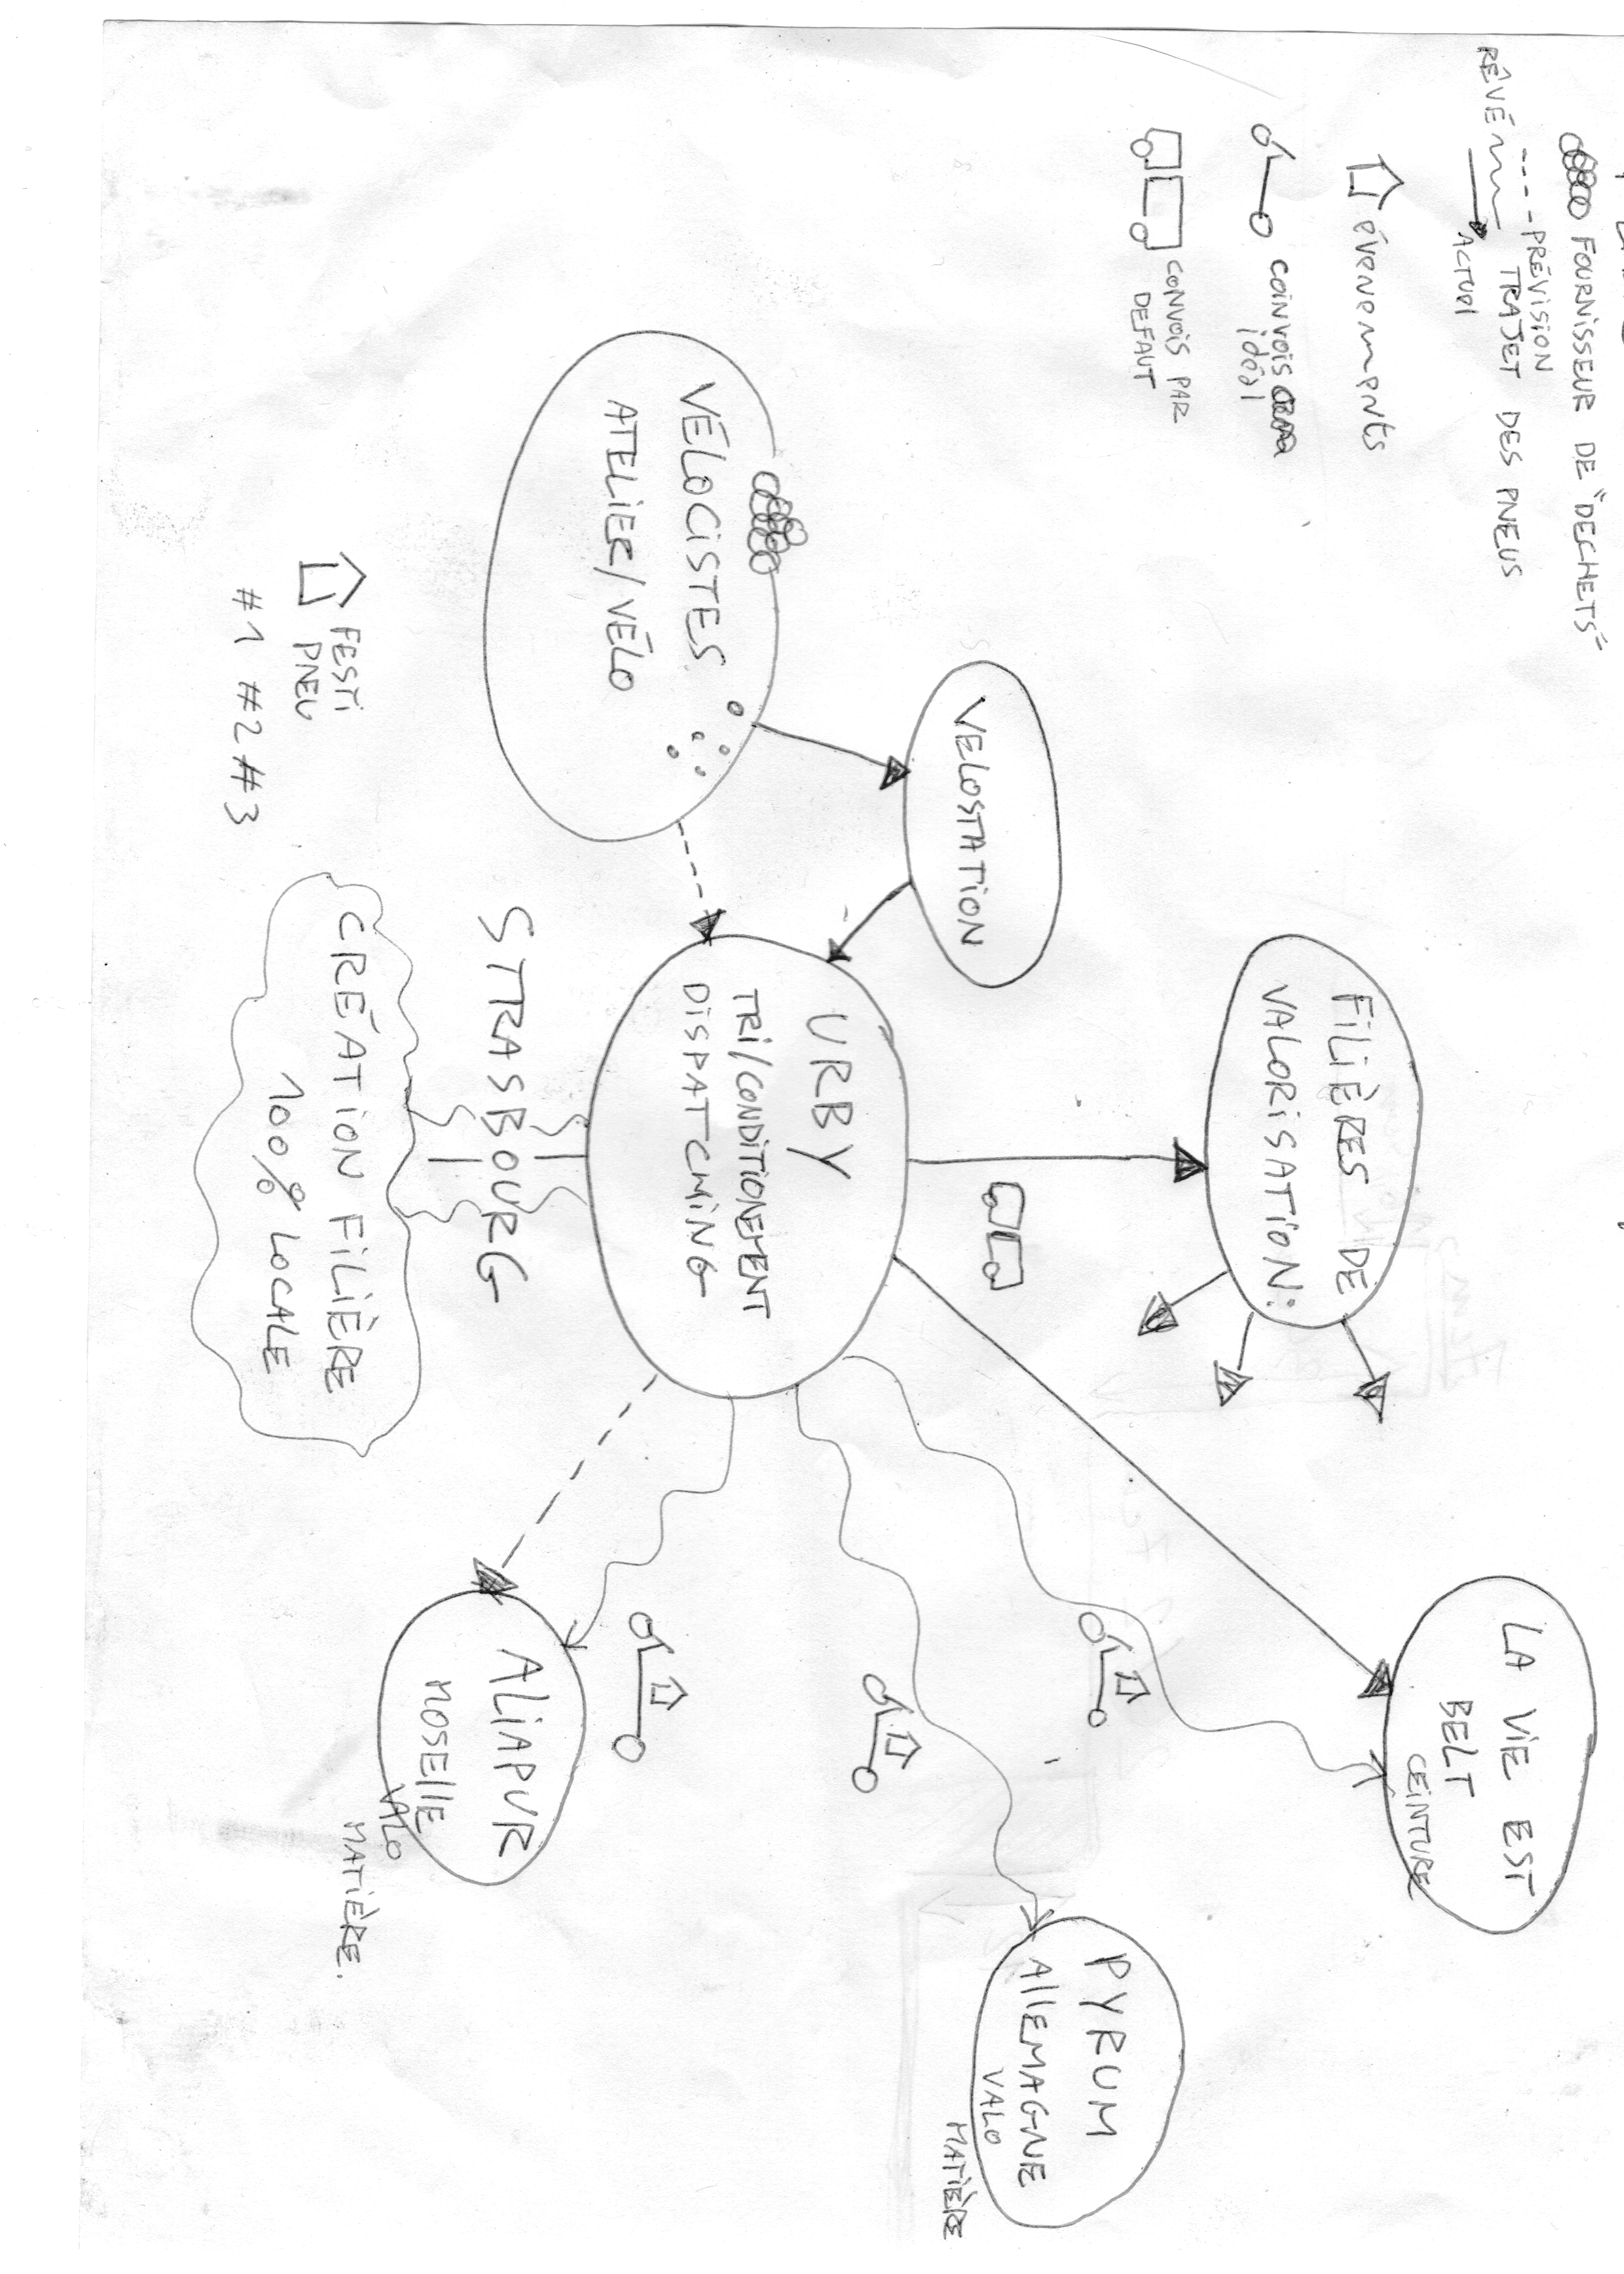 FOURNISSEUR DE "DECHETS"
PRÉVISION
RÊVÉ TRAJET DES PNEUS
ACTUEL
évenements
coinvois
idéal
CONVOIS PAR
DEFAUT
LA VIE EST
BELT
CEINTURE
FILIÈRES DE
VALORISATION:
PYRUM
AllEMAGNE
VALO
MATIÈRE
VELOSTATION
URBY
TRI/CONDITIONEMENT
DISPATCHING
VÉLOCISTES
ATELIER/VÉLO
ALIAPUR
MOSEllE
VALO
MATIÈRE.
STRASBOURG
CRÉATION FILIÈRE
100% LOCALE
FESTI
PNEU
#1 #2 #3